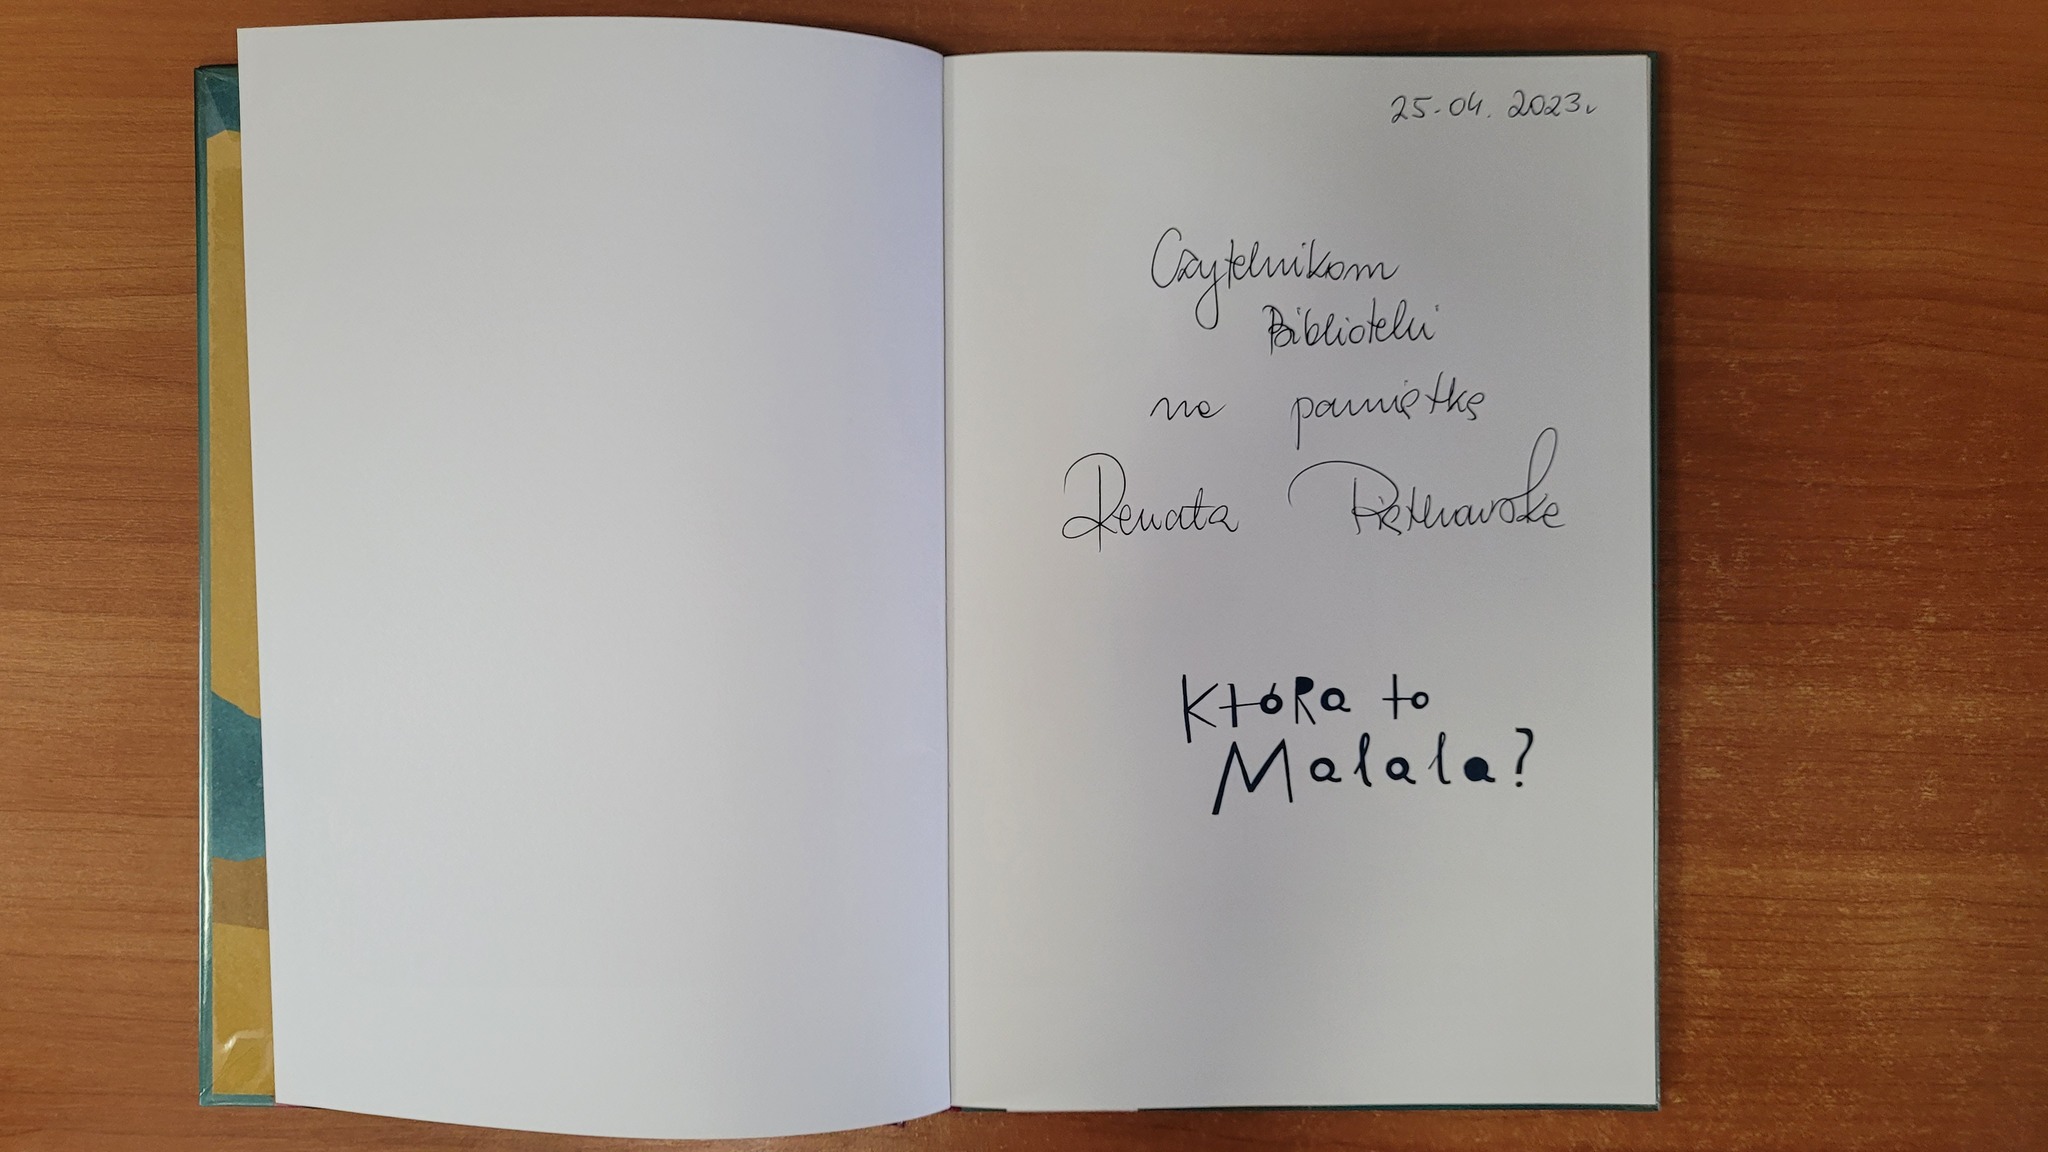 25.04.2023r
Czytelnikom
Biblioteki
na pamiątkę
Renata Piątkowska
Która to
Malala?